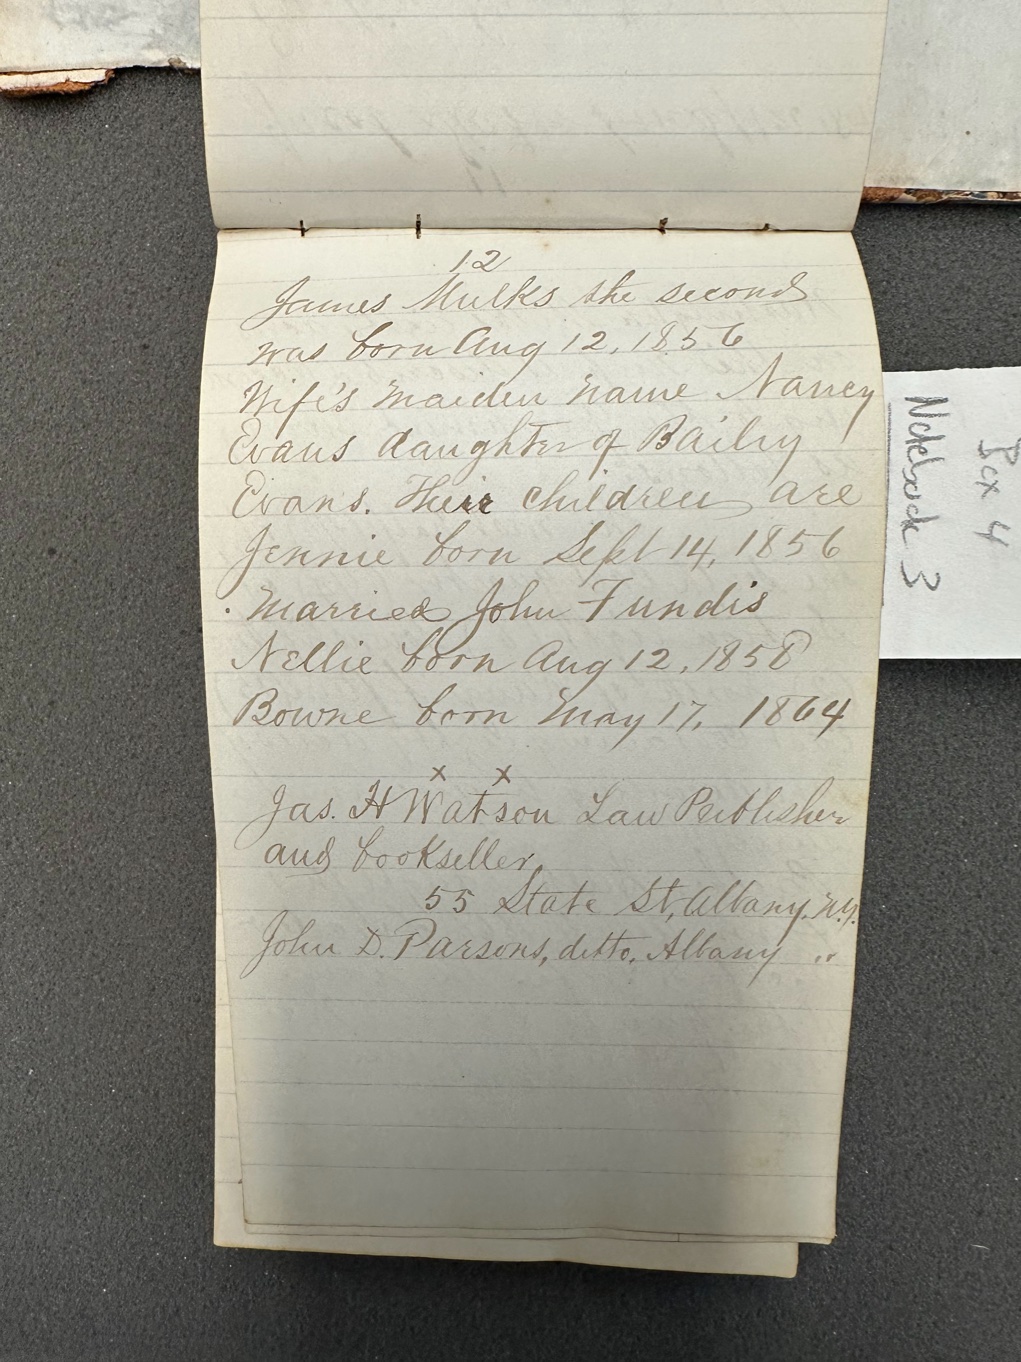 12
James Mulks the second
was born Aug 12, 1856
Wife's maiden name Nancy
Evans daughter of Bailey
Evans. Their children are
Jennie born Sept 14, 1856
. Married John Fundis
Nellie born Aug 12, 1858
Bowne born May 17, 1864
x x
Jas. H Watson Law Publisher
and bookseller,
55 State St, Albany. N.Y.
John D. Parsons, ditto, Albany "
Box 4
Notebook 3